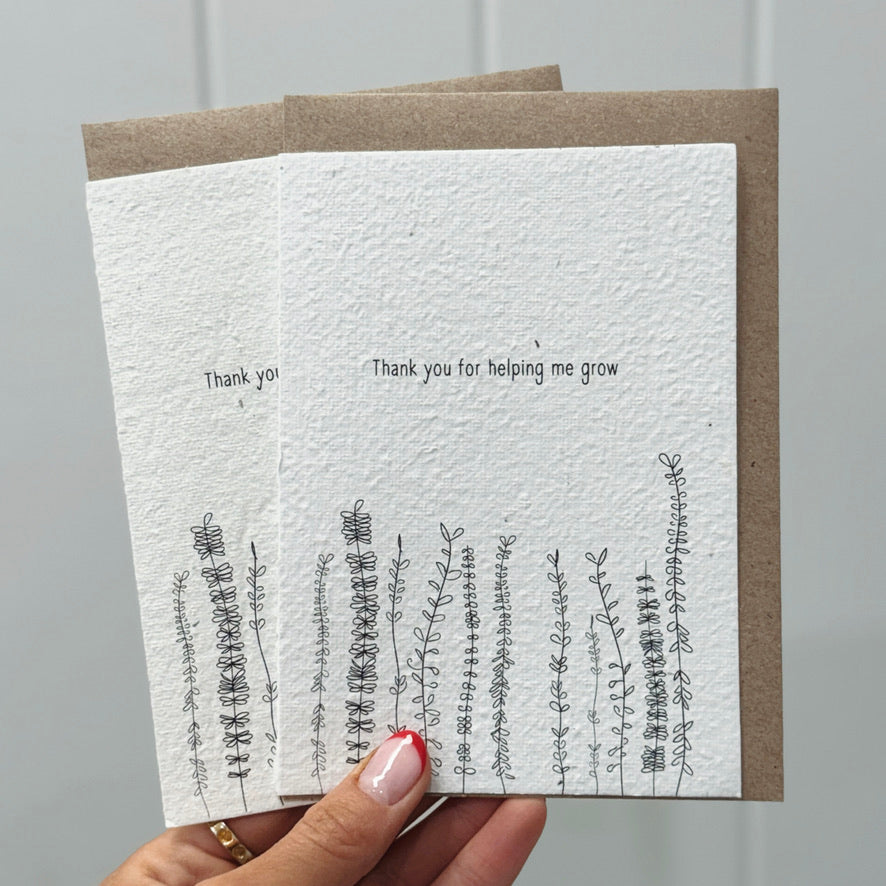 Thank you
Thank you for helping me grow